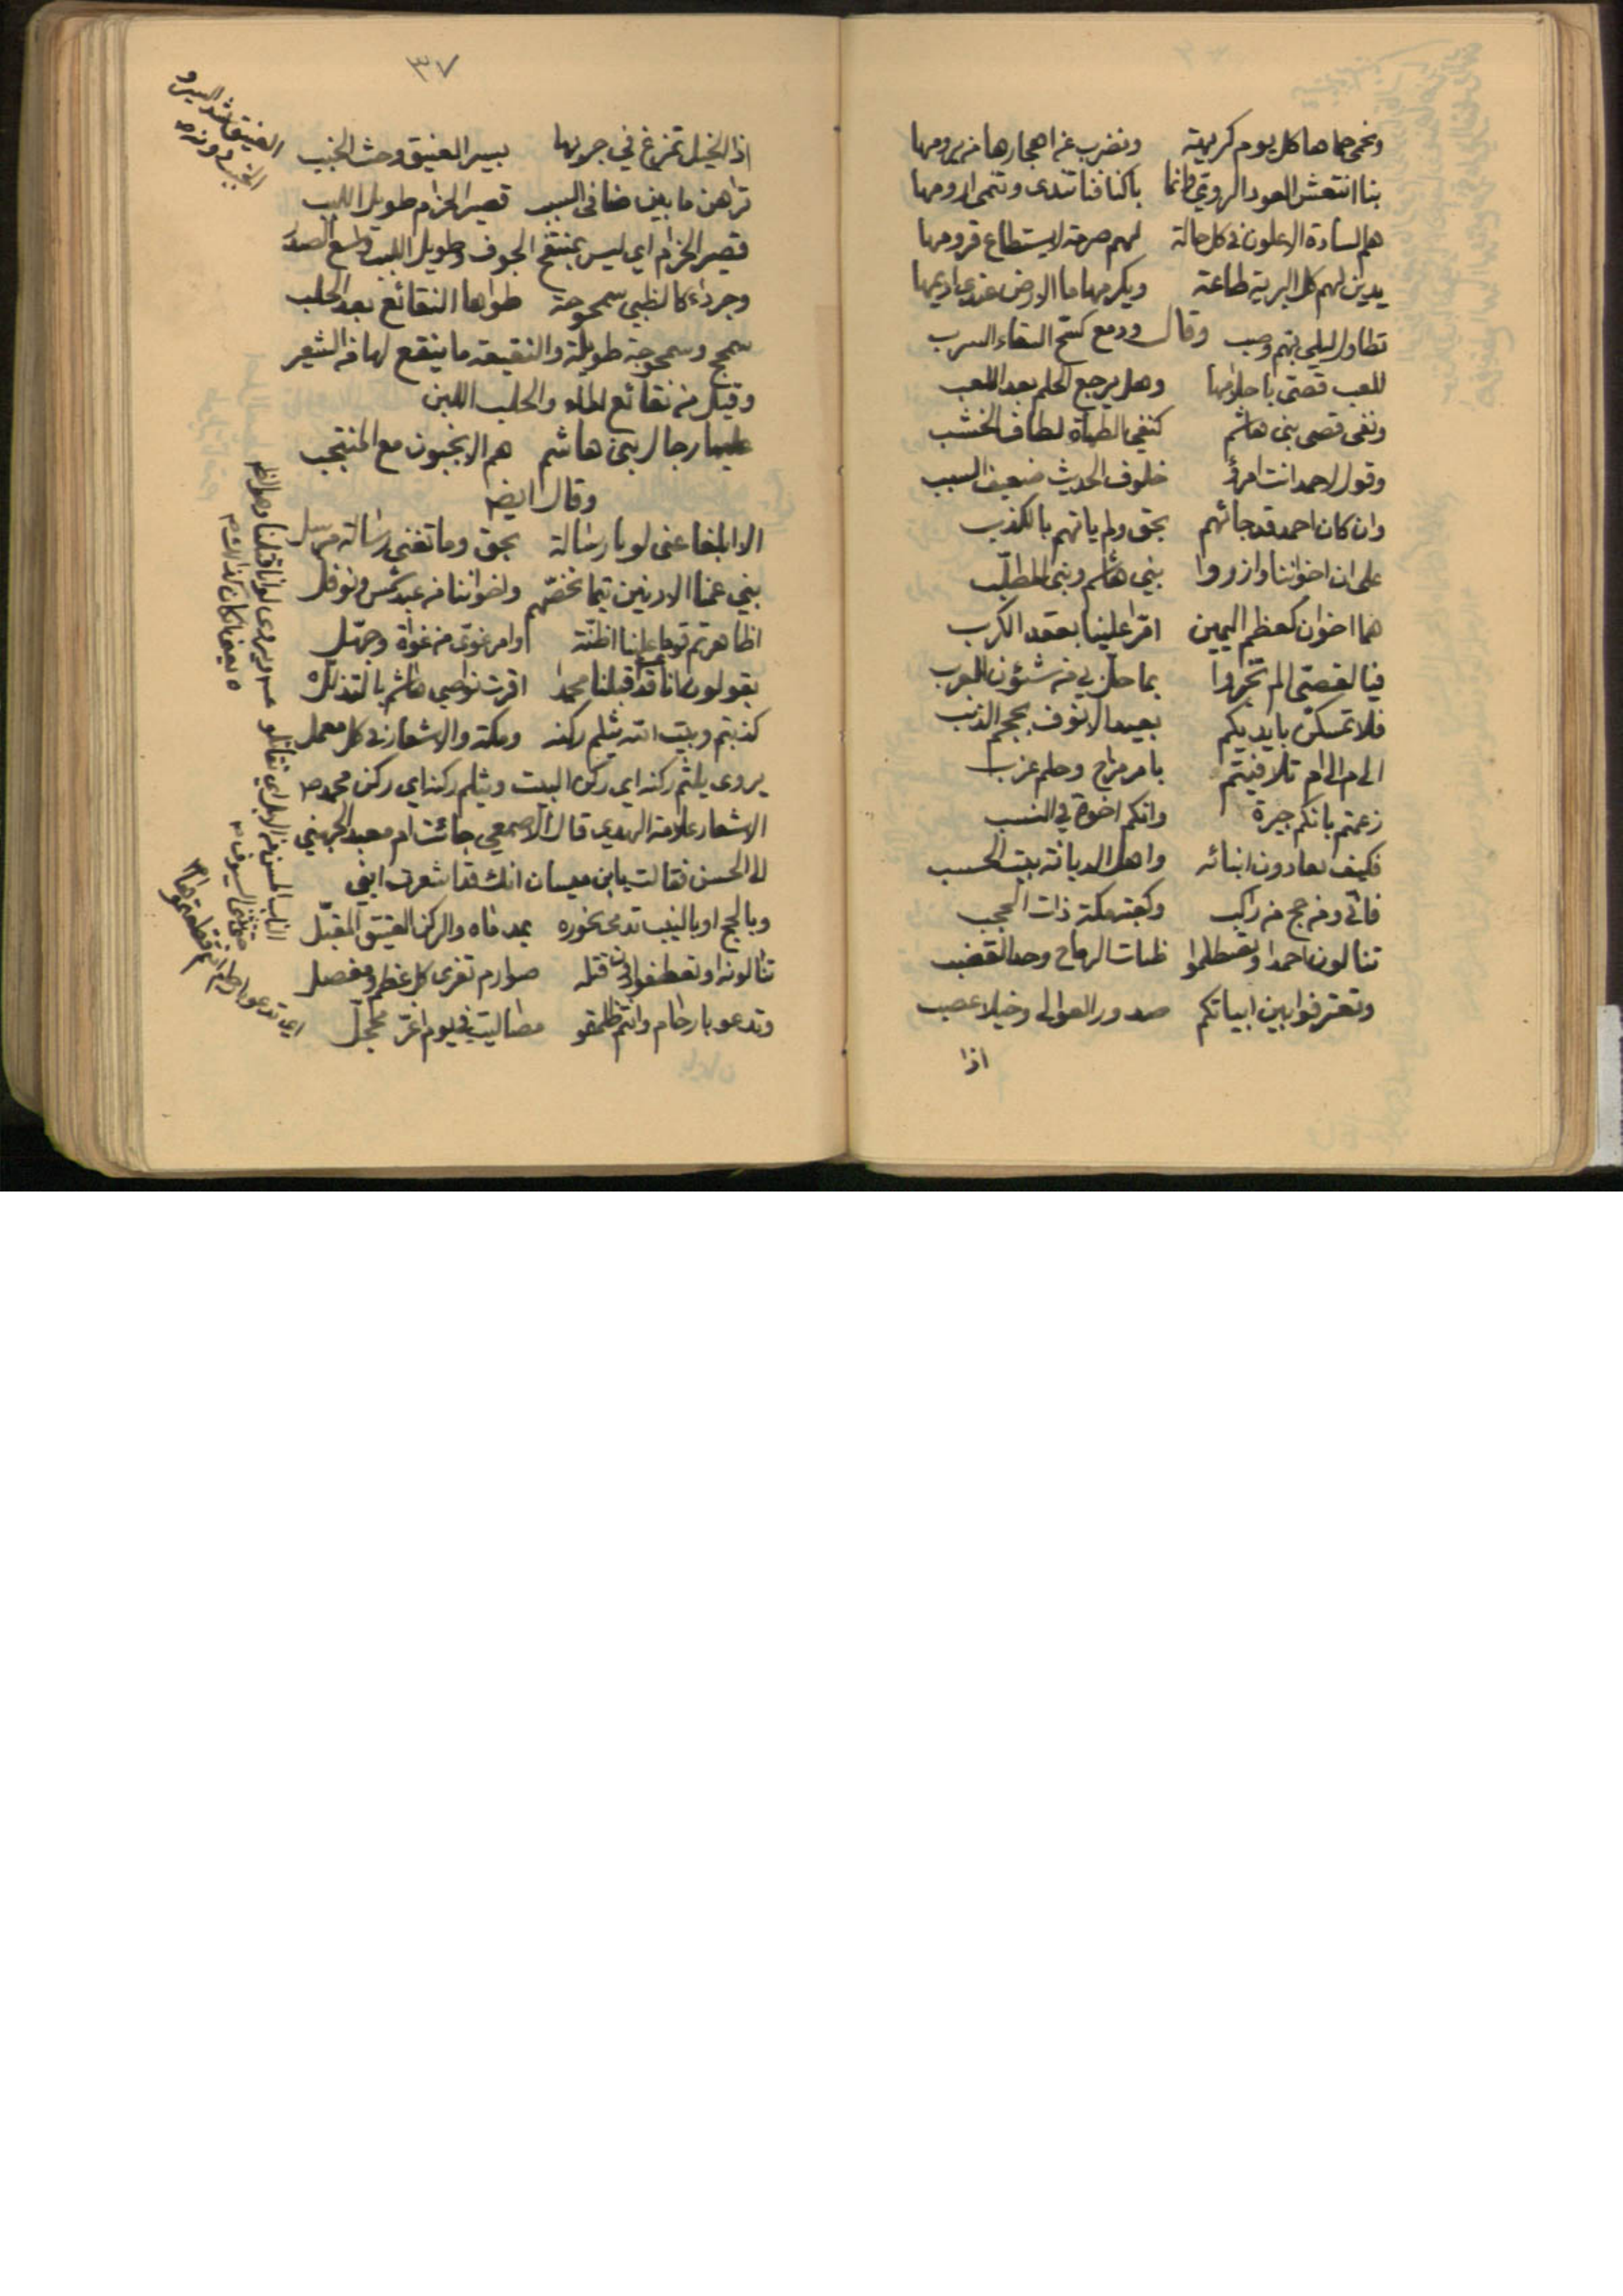 ونحمي حماها كل يوم كريهة ونضرب عن اهجارها من يرومها
بنا انتعش العود الروي كانما باكنافنا تندى وتنمى ارومها
هم السادة الاعلون في كل حالة لهم صرمة لا يستطاع قرومها
يدين لهم كل البرية طاعة ويكرمها ما الارض عندي اديمها
وقال
تطاول ليلى بهم وصب ودمع كسح السقاء السرب
للعب قصى باحلامها وهل يرجع الحلم بعد اللعب
ونفى قصى بنى هاشم كنفي الطهاة لطاف الخشب
وقول لاحمد انت امرؤ خلوف الحديث ضعيف السبب
وان كان احمد قد جائهم بحق ولم ياتهم بالكذب
على ان اخواننا وازروا بني هاشم وبنى المطلب
هما اخوان كعظم اليمين امرّا علينا بعقد الكرب
فيا لقصى الم تخبروا بما حل بي من شئون العرب
فلا تمسكن بايديكم بعيد الانوف بعجم الذنب
الى م الى م تلافيتم بامر مزاح وحلم عزب
زعمتم بانكم جيرة وانكم اخوة في النسب
فكيف تعادون ابنائه واهل الديانة بيت الحسب
فاني ومن حج من راكب وكعبة مكة ذات الحجب
تنالون احمد او تصطلموا ظبات الرماح وحد القضب
وتعترفوا بين ابياتكم صدور العوالى وخيلا عصب
اذا
٣٧
اذا الخيل تمزغ في جريها بسير العنيق وحث الخبب
تراهن ما بين ضافى السبيب قصير الحزام طويل اللبب
قصير الحزام اي ليس بمنتفخ الجوف وطويل اللبب واسع الصدر
وجرداء كالظبي سمحوجة طواها النقائع بعد الحلب
سمحج وسمحوجة طويلة والنقيعة ما ينقع لها من الشعير
وقيل من نقائع الماء والحلب اللبن
عليها رجال بنى هاشم هم الانجبون مع المنتجب
وقال ايضا
الا ابلغا عنى لويا رسالة بحق وما تغني رسالة مرسل
بني عمنا الادنين تيما نخصهم واخواننا من عبد شمس ونوفل
اظاهرتم قوما علينا اظنة وامر غوى من غواة وجهل
يقولون انا قد قتلنا محمدا اقرت نواصي هاشم بالتذلل
كذبتم وبيت الله يثلم ركنه ومكة والاشعار في كل معمل
يروى يلثم ركنه اي ركن البيت ويثلم ركنه اي ركن محمد ص
الاشعار علامة الهدي قال الاصمعي جائت ام معبد الجهني
الى الحسن فقالت يا ابن ميسان انك قد اشعرت ابني
وبالحج او بالنيب تدمى نحوره بمدماه والركن العتيق المقبل
تنالونه او تعطفوا دون قتله صوارم تفرى كل عظم ومفصل
وتدعو بارحام وانتم ظلمتمو مصاليت في يوم اغر محجل
العنيق شد السير و
الخبب دونه